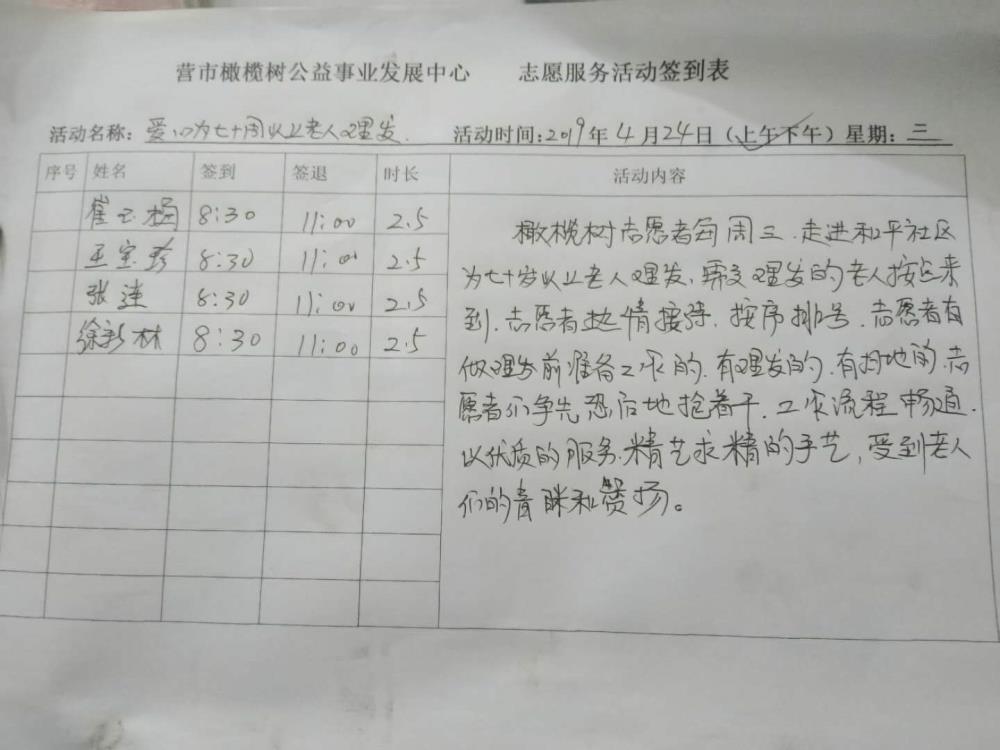 营市橄榄树公益事业发展中心 志愿服务活动签到表
活动名称：爱心为七十周以上老人理发. 活动时间:2019年4月24日（上午下午）星期：三
序号 姓名 签到 签退 时长 活动内容
崔云 8:30 11:00 2.5
王宝珍 8:30 11:00 2.5
张莲 8:30 11:00 2.5
徐彩林 8:30 11:00 2.5
橄榄树志愿者每周三.走进和平社区
为七十岁以上老人理发，需要理发的老人按点来
到.志愿者热情接待.按序排号.志愿者有
做理发前准备工作的.有理发的.有扫地的.志
愿者们争先恐后地抢着干.工作流程畅通.
以优质的服务.精艺求精的手艺，受到老人
们的青眯和赞扬。